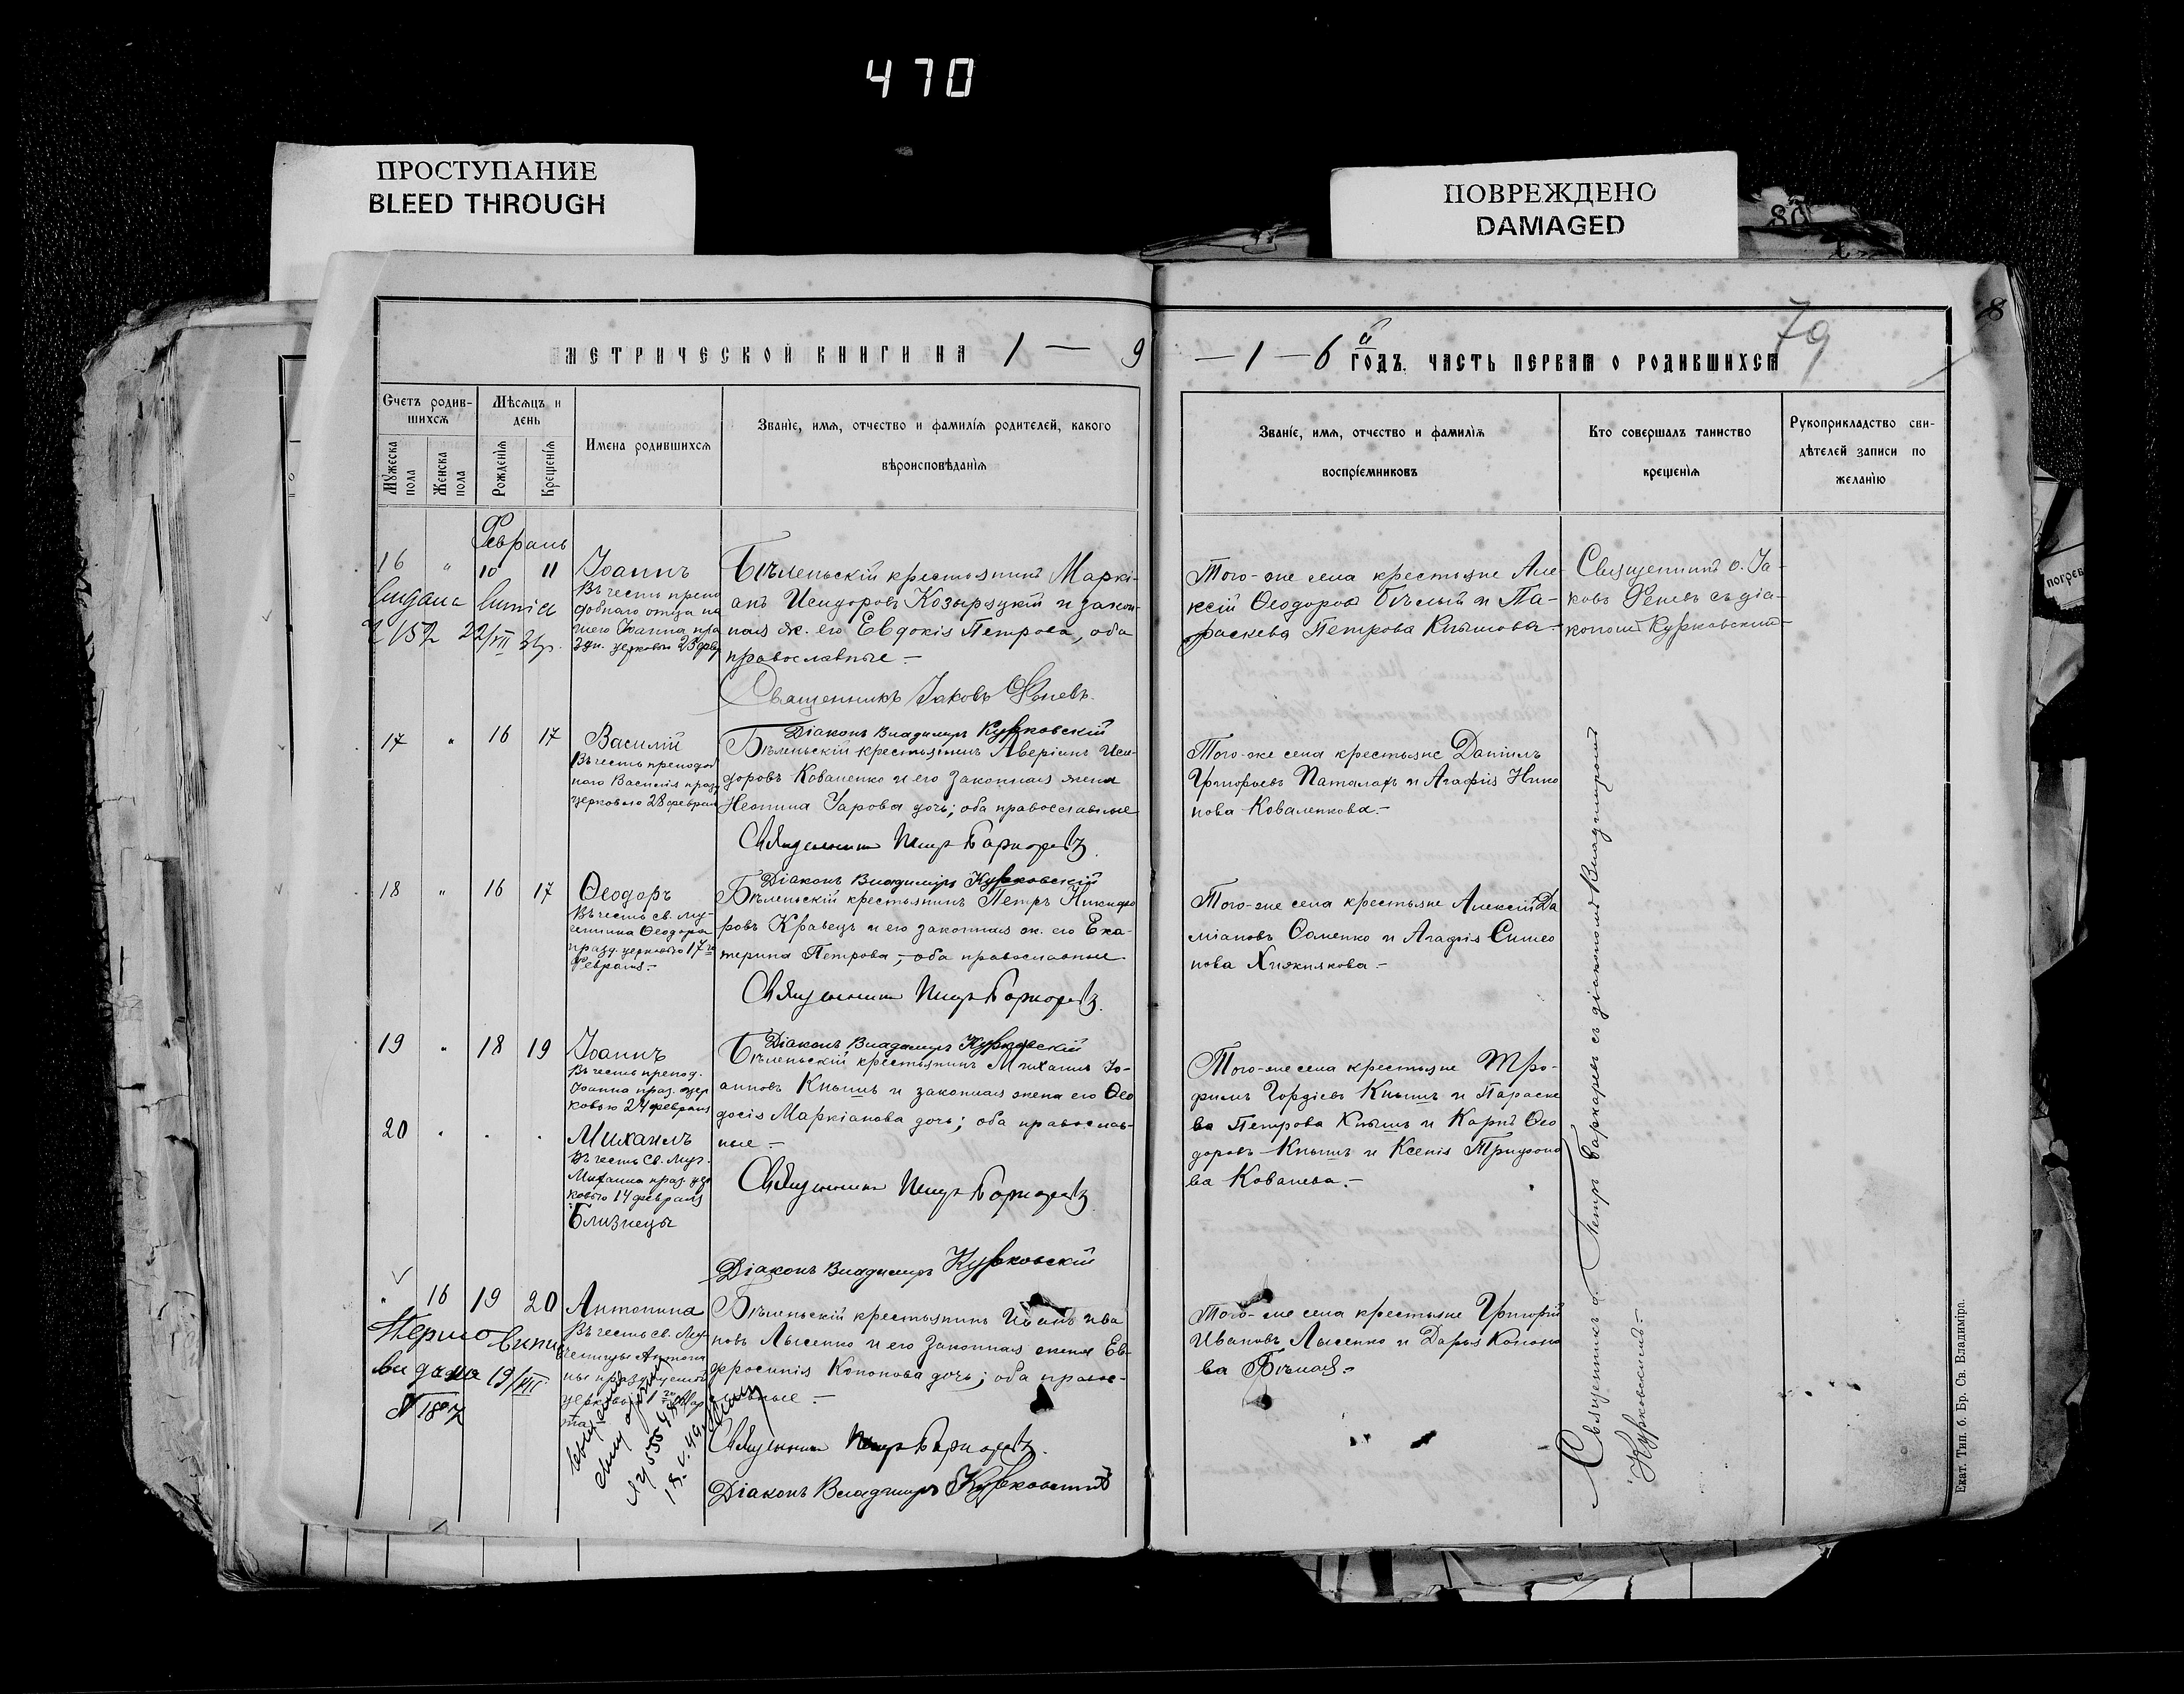 470
ПРОСТУПАНИЕ
BLEED THROUGH
ПОВРЕЖДЕНО
DAMAGED
80
79
МЕТРИЧЕСКОЙ КНИГИ НА 1 — 9
— 1 — 6 й ГОДЪ. ЧАСТЬ ПЕРВАЯ О РОДИВШИХСЯ
Счетъ родив-
шихся
Мужеска
пола
Женска
пола
Мѣсяцъ и
день
Рожденія
Крещенія
Имена родившихся
Званіе, имя, отчество и фамилія родителей, какого
вѣроисповѣданія
Званіе, имя, отчество и фамилія
воспріемниковъ
Кто совершалъ таинство
крещенія
Рукоприкладство сви-
дѣтелей записи по
желанію
Февраль
16 " 10 11
Іоаннъ
Въ честь препо
добнаго отца на
шего Іоанна пра
здн. церковью 23 февр
22/VII 31г.
Бѣленьскій крестьянинъ Маркі-
анъ Исидоровъ Козырацкій и закон-
ная ж. его Евдокія Петрова, оба
православные —
Священникъ Іаковъ Феневъ.
Діаконъ Владимиръ Курковскій
Того-же села крестьяне Але-
ксій Ѳеодоровъ Бѣлый и Па-
раскева Петрова Кнышова —
Священникъ о. Іа-
ковъ Феневъ съ діа-
кономъ Курковскимъ —
17 " 16 17
Василій
Въ честь преподоб
наго Василія празд
церковью 28 февраля
Бѣленьскій крестьянинъ Аверіанъ Иси-
доровъ Коваленко и его законная жена
Неонила Уарова дочь; оба православные
Священникъ Петръ Бархаревъ
Діаконъ Владимиръ Курковскій
Того-же села крестьяне Даніилъ
Григорьевъ Паталахъ и Агафія Нико
нова Коваленкова. —
18 " 16 17
Ѳеодоръ
Въ честь св. му-
ченика Ѳеодора
празд. церковью 17 го
февраля. —
Бѣленьскій крестьянинъ Петръ Никифо
ровъ Кравецъ и его законная ж. его Ека-
терина Петрова, — оба православные
Священникъ Петръ Бархаревъ
Діаконъ Владимиръ Курковскій
Того-же села крестьяне Алексій Да
міановъ Оаменко и Агафія Симео
нова Хижнякова —
19 " 18 19
Іоаннъ
Въ честь препод.
Іоанна праз. цер
ковью 24 февраля
Бѣленьскій крестьянинъ Михаилъ Іо-
анновъ Кнышъ и законная жена его Ѳео
досія Маркіанова дочь; оба православ-
ные —
Священникъ Петръ Бархаревъ
Діаконъ Владимиръ Курковскій
Того-же села крестьяне Тро-
фимъ Гордіевъ Кнышъ и Параске
ва Петрова Кнышъ и Карпъ Ѳео
доровъ Кнышъ и Ксенія Трифоно
ва Ковалева. —
20 " " "
Михаилъ
Въ честь Св. Муч.
Михаила праз. цер
ковью 14 февраля
Близнецы
" 16 19 20
Антонина
Въ честь св. Му-
ченицы Антони
ны празднуемой
церковью 1 го Мар
та
19/VIII
18.V.49
Бѣленьскій крестьянинъ Иванъ Ива
новъ Лысенко и его законная жена Ев-
фросинія Кононова дочь; оба право-
славные —
Священникъ Петръ Бархаревъ.
Діаконъ Владимиръ Курковскій
Того-же села крестьяне Григорій
Ивановъ Лысенко и Дарья Кононо
ва Бѣлая —
Священникъ о. Петръ Бархаревъ съ діакономъ Владимиромъ
Курковскимъ. —
Екат. Тип. б. Бр. Св. Владиміра.
погреб